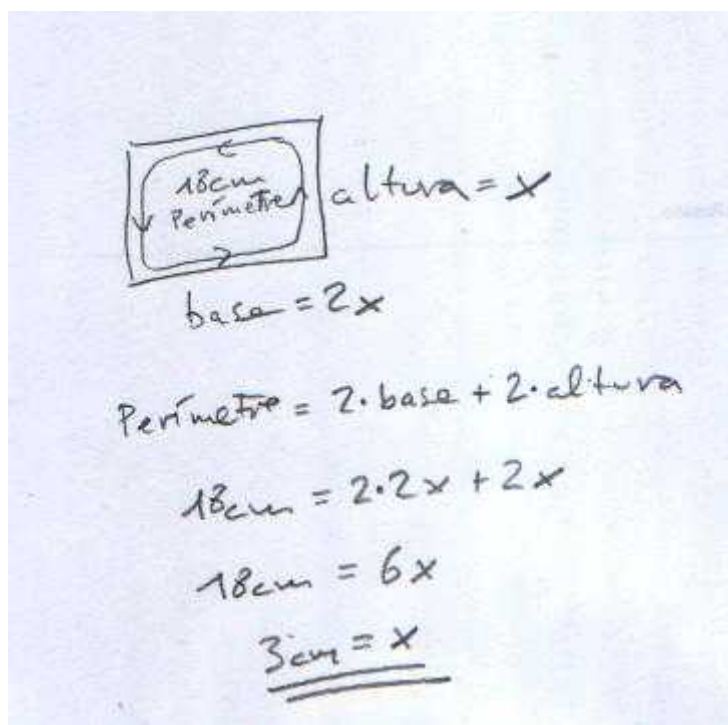 18cm
Perímetre
altura = x
base = 2x
Perímetre = 2·base + 2·altura
18cm = 2·2x + 2x
18cm = 6x
3cm = x